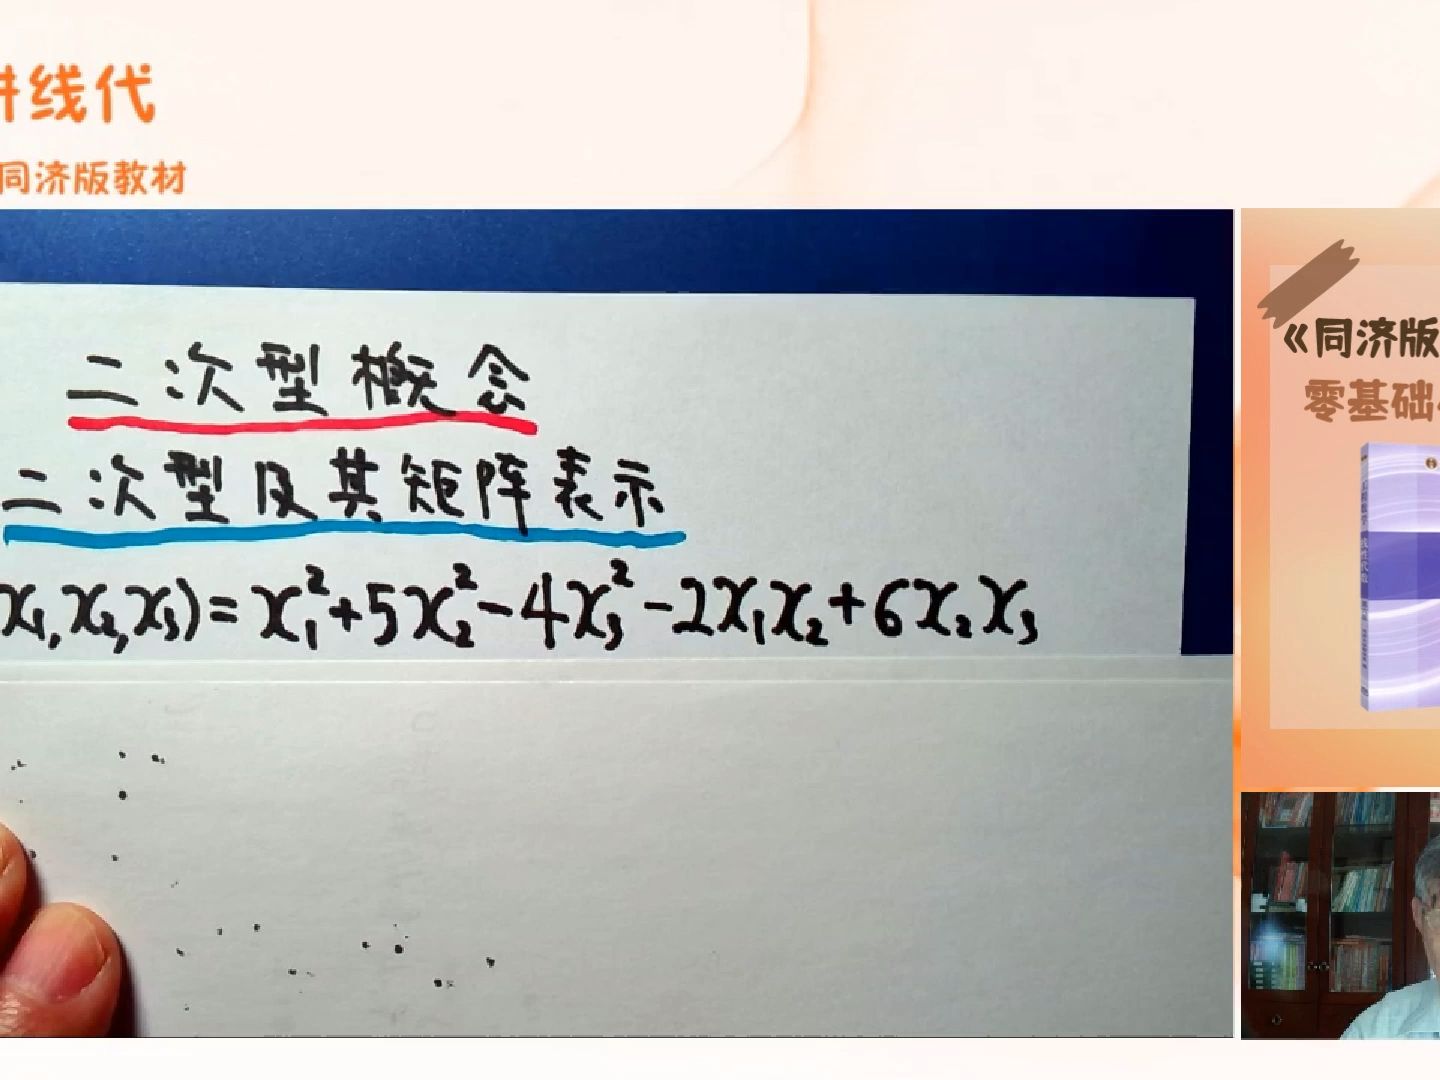 讲线代
同济版教材
二次型概念
二次型及其矩阵表示
x₁,x₂,x₃)=x₁²+5x₂²-4x₃²-2x₁x₂+6x₂x₃
《同济版
零基础
线性代数